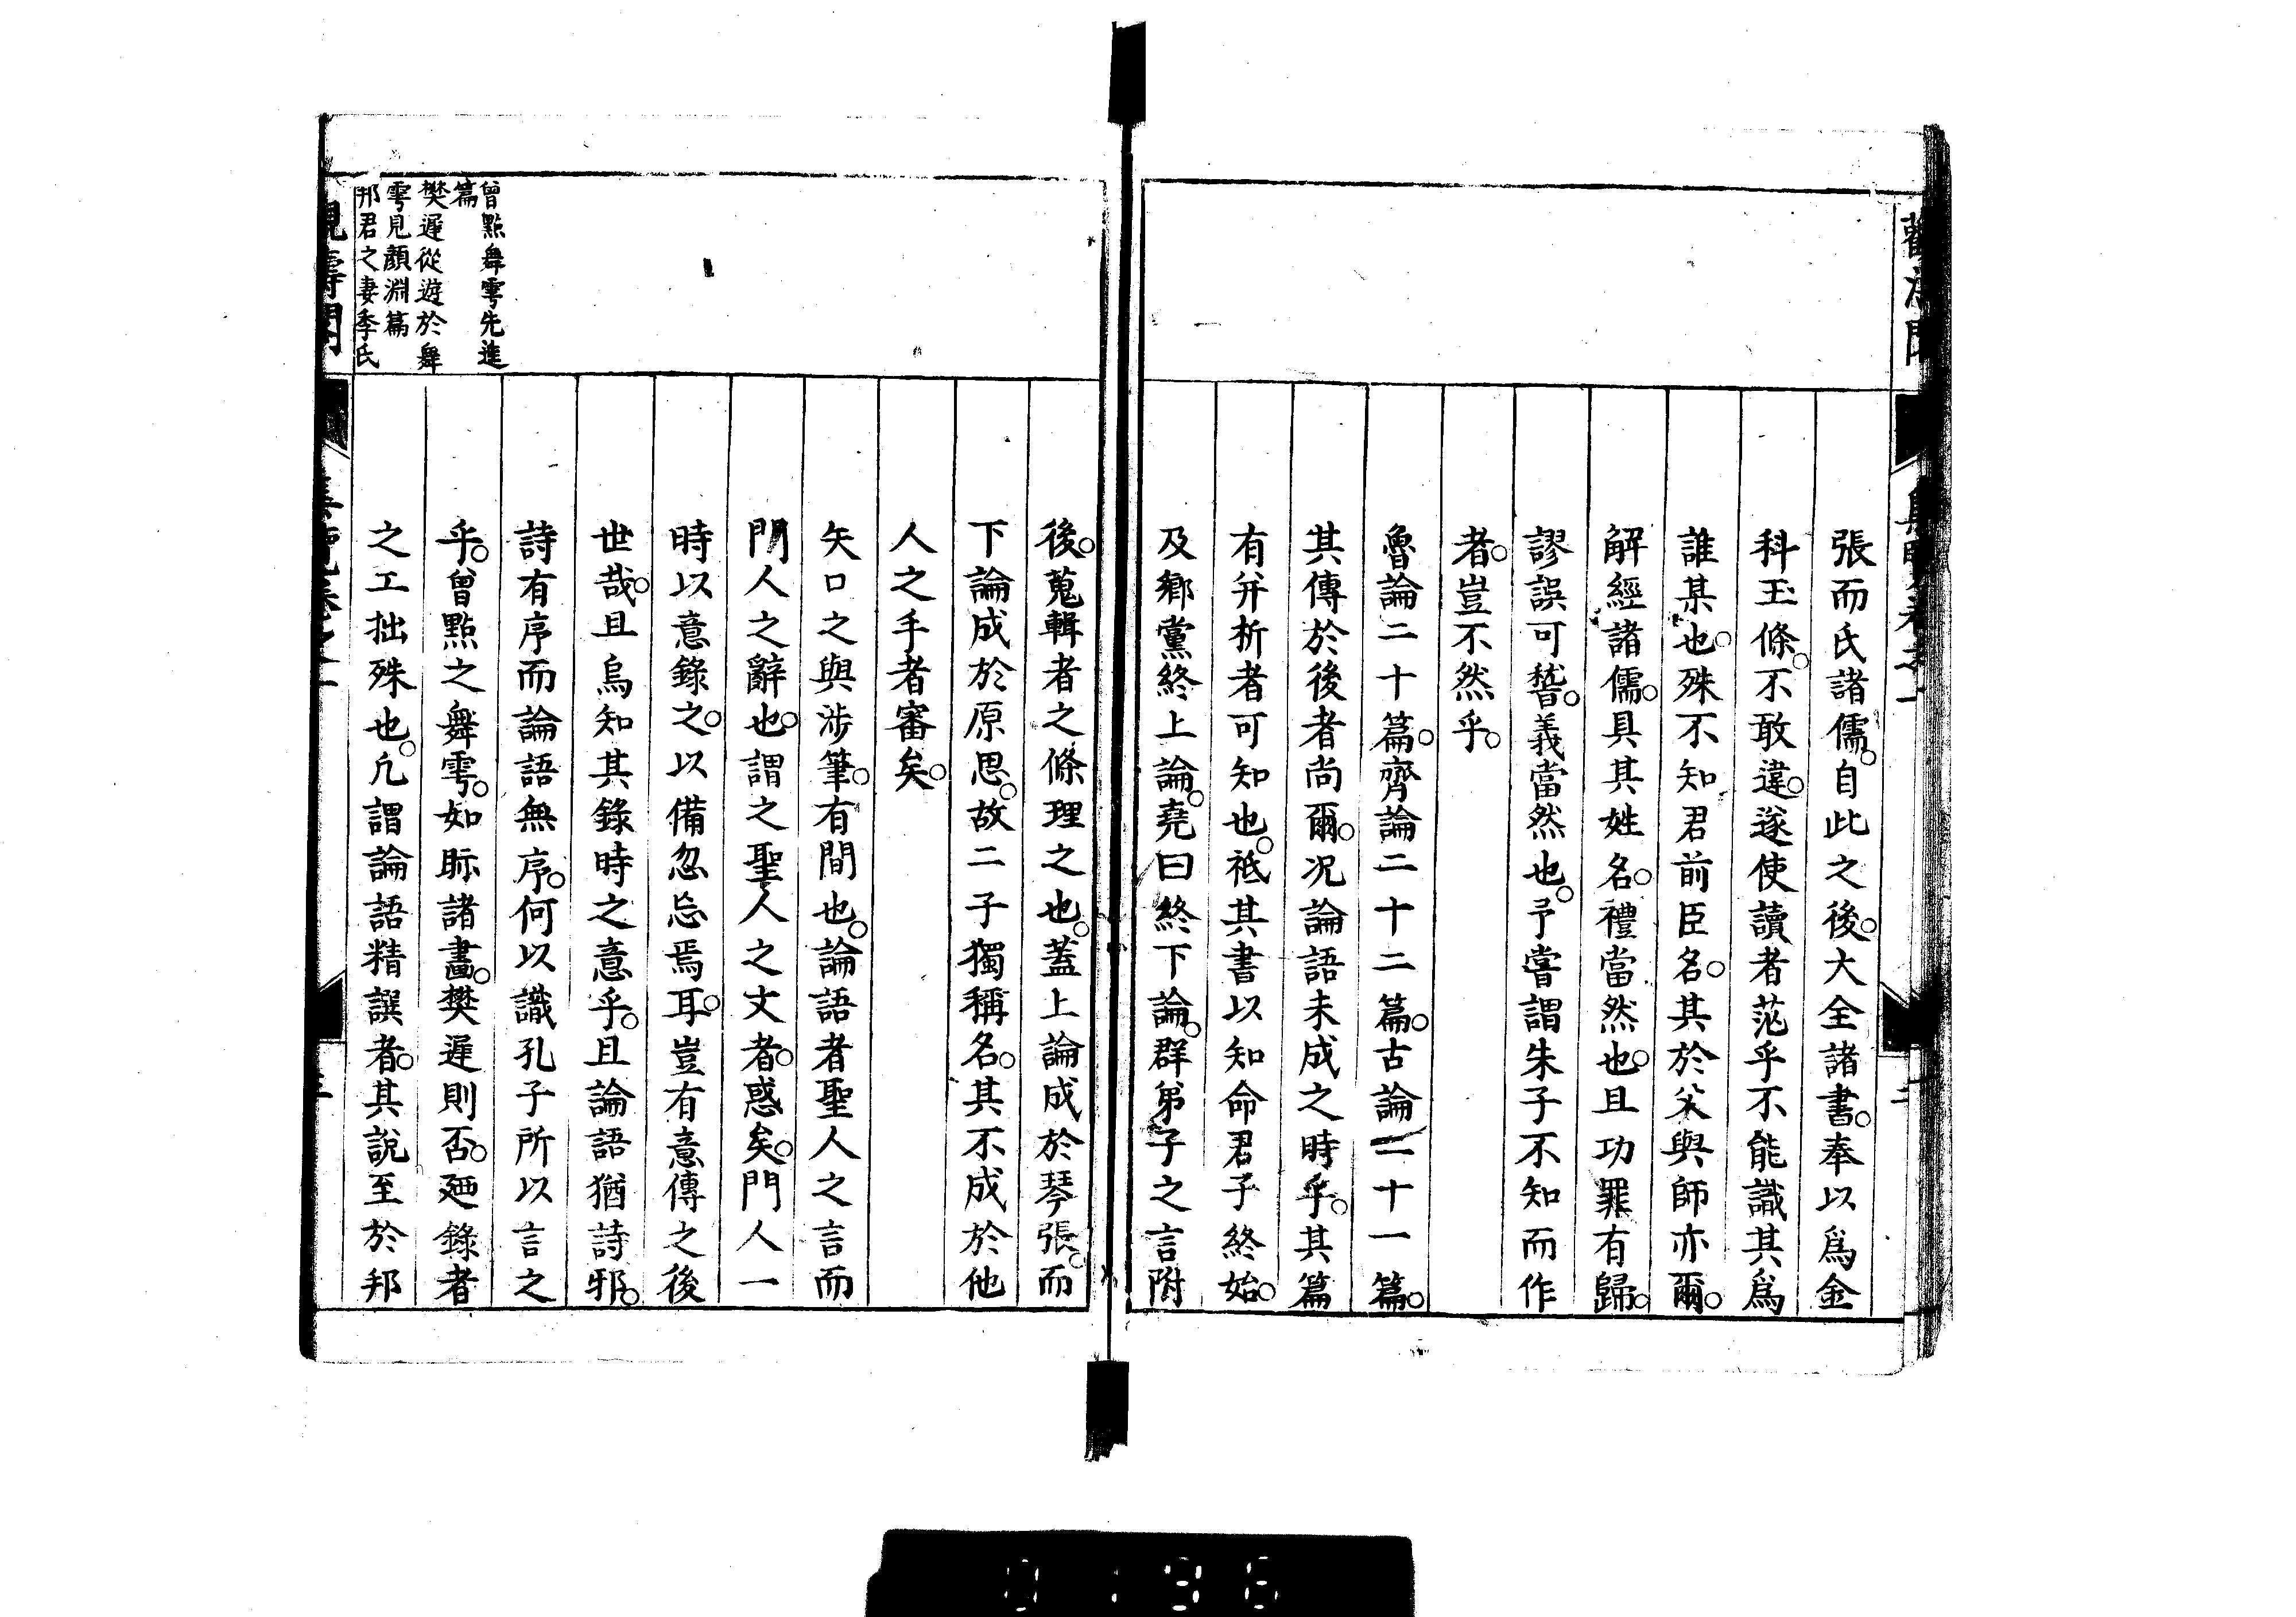 張而氏諸儒。自此之後。大全諸書。奉以爲金
科玉條。不敢違。遂使讀者茫乎不能識其爲
誰某也。殊不知君前臣名。其於父與師亦爾。
解經諸儒。具其姓名。禮當然也。且功罪有歸。
謬誤可嵆。義當然也。予嘗謂朱子不知而作
者。豈不然乎。
魯論二十篇。齊論二十二篇。古論二十一篇。
其傳於後者尚爾。况論語未成之時乎。其篇
有幷析者可知也。祗其書以知命君子終始。
及鄉黨終上論。堯曰終下論。群弟子之言附
後。蒐輯者之條理之也。蓋上論成於琴張。而
下論成於原思。故二子獨稱名。其不成於他
人之手者審矣。
矢口之與涉筆。有間也。論語者聖人之言而
門人之辭也。謂之聖人之文者。惑矣。門人一
時以意錄之。以備忽忘焉耳。豈有意傳之後
世哉。且烏知其錄時之意乎。且論語猶詩邪。
詩有序而論語無序。何以識孔子所以言之
乎。曾點之舞雩。如眎諸畫。樊遲則否。廼錄者
之工拙殊也。凢謂論語精譔者。其說至於邦
曾點舞雩先進
篇
樊遲從遊於舞
雩見顏淵篇
邦君之妻季氏